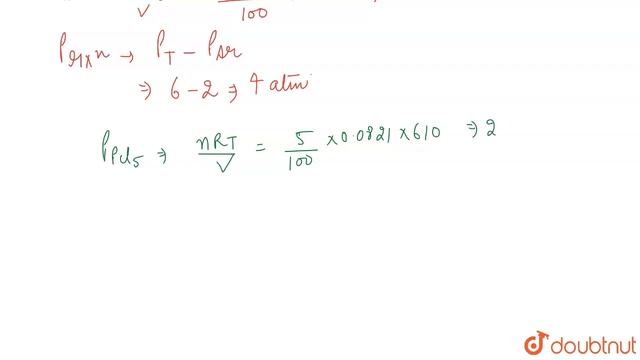 V 100
P_rxn → P_T - P_Ar
⇒ 6 - 2 ⇒ 4 atm
P_PCl5 ⇒ nRT/V = 5/100 × 0.0821 × 610 ⇒ 2
doubtnut